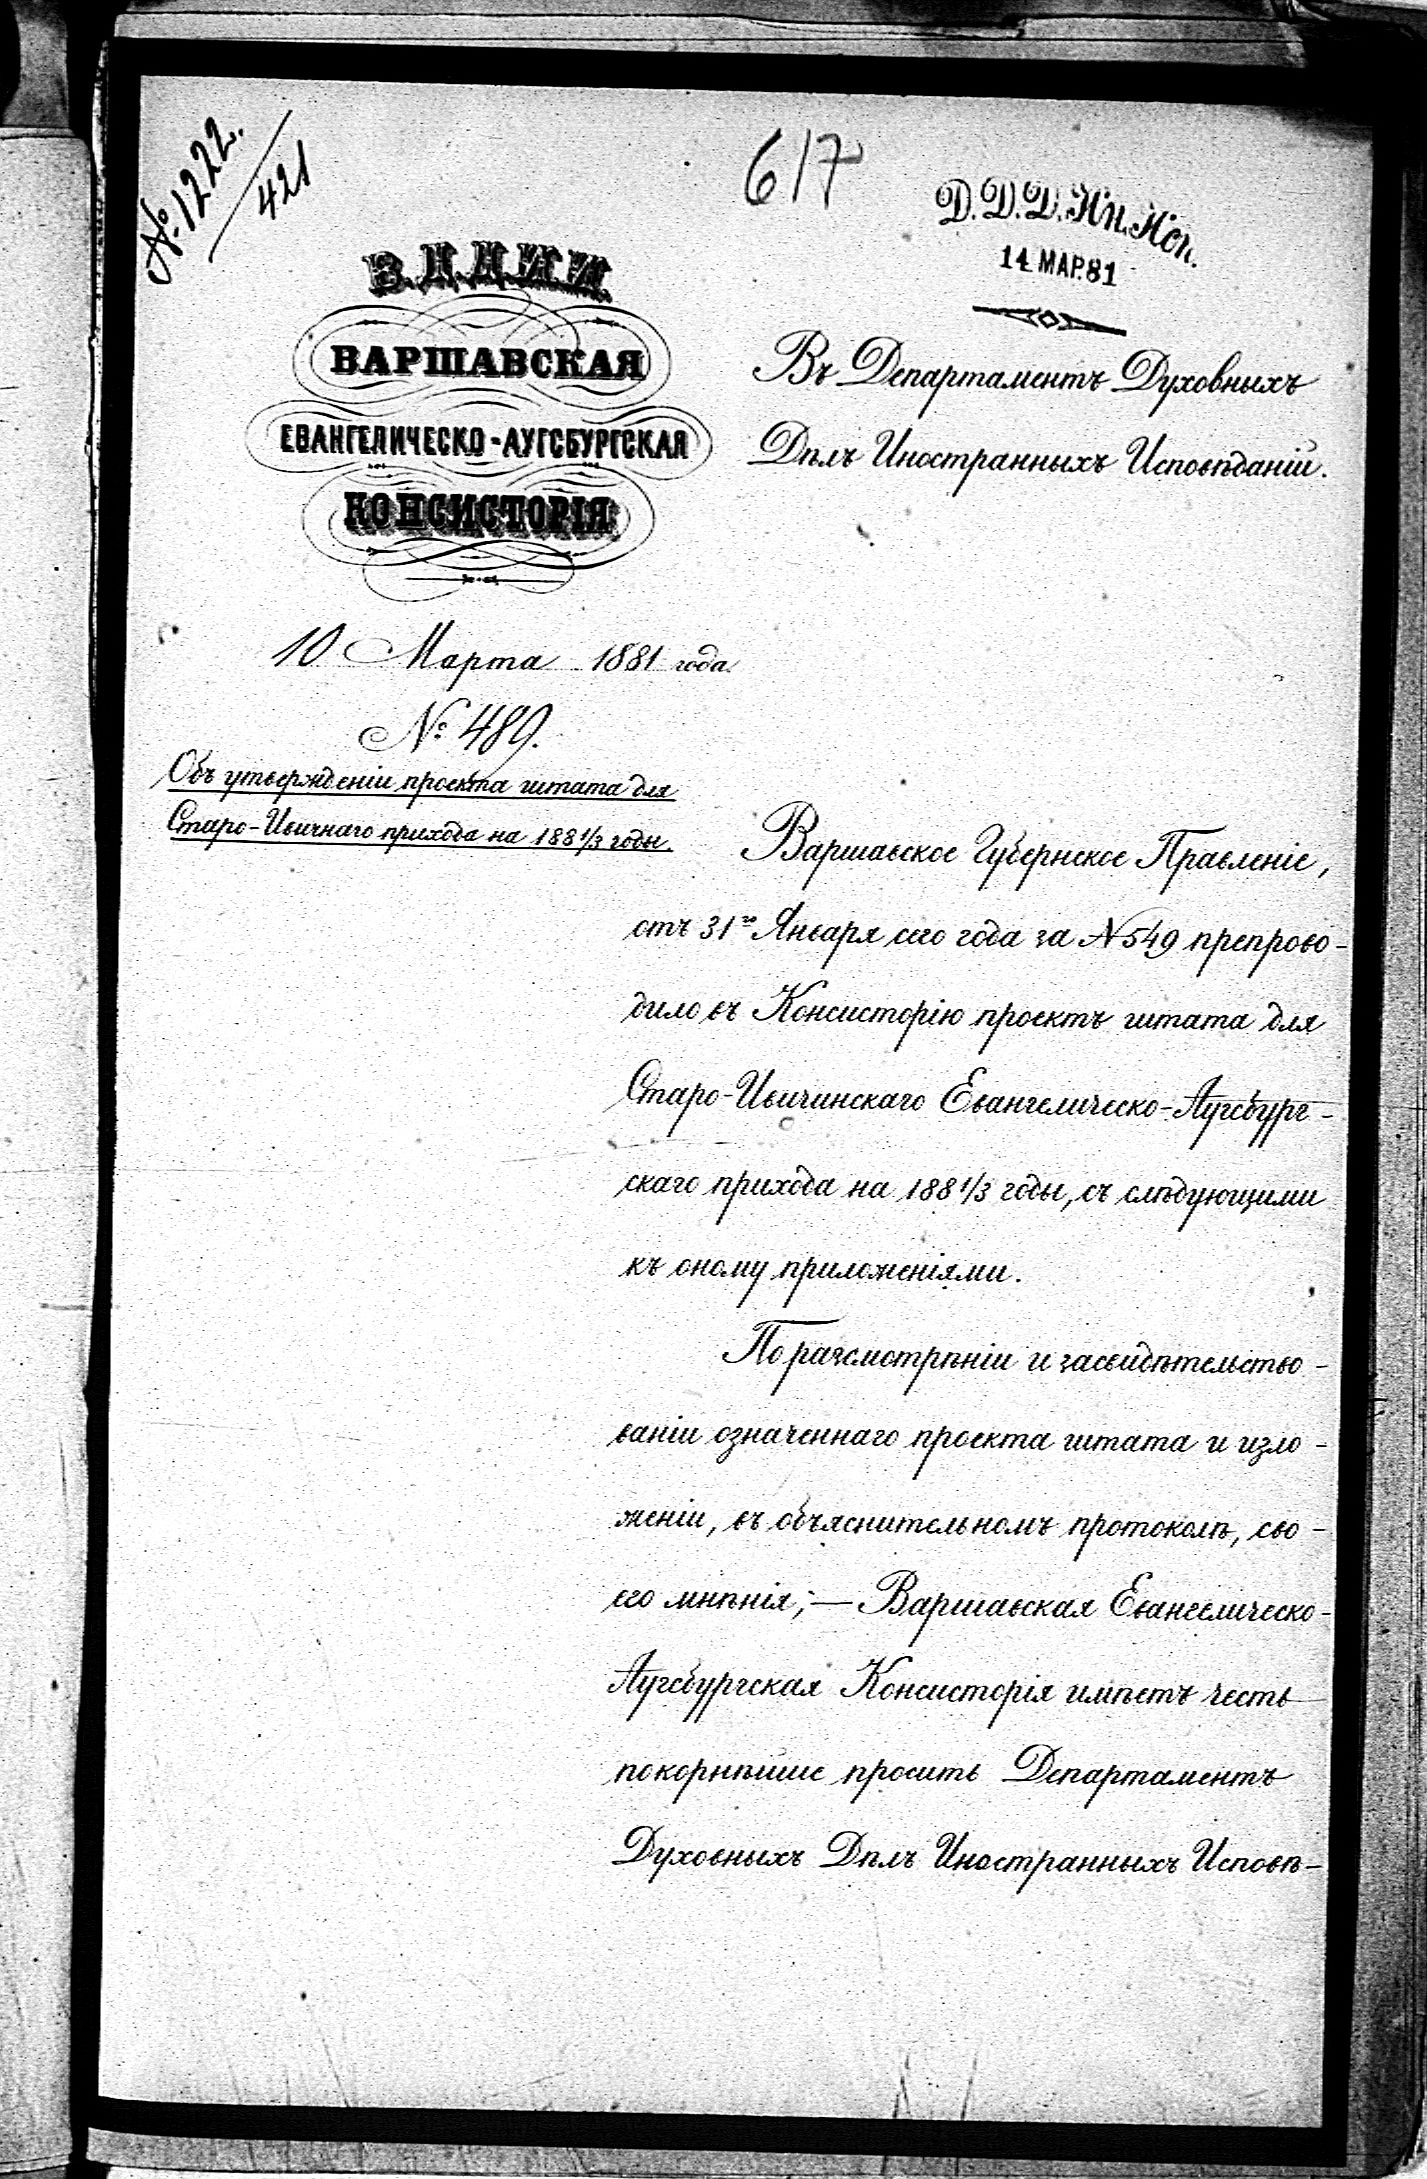 № 1222.
421
617
Д.Д.Д.Ин.Исп.
14 МАР.81
ВАРШАВСКАЯ
ЕВАНГЕЛИЧЕСКО-АУГСБУРГСКАЯ
КОНСИСТОРІЯ
Въ Департаментъ Духовныхъ
Дѣлъ Иностранныхъ Исповѣданій.
10 Марта 1881 года.
№ 489.
Объ утвержденіи проекта штата для
Старо-Ивичнаго прихода на 1881/3 годы.
Варшавское Губернское Правленіе,
отъ 31го Января сего года за № 549 препрово-
дило въ Консисторію проектъ штата для
Старо-Ивичинскаго Евангелическо-Аугсбург-
скаго прихода на 1881/3 годы, съ слѣдующими
къ оному приложеніями.
По разсмотрѣніи и засвидѣтельство-
ваніи означеннаго проекта штата и изло-
женіи, въ объяснительномъ протоколѣ, сво-
его мнѣнія; — Варшавская Евангелическо-
Аугсбургская Консисторія имѣетъ честь
покорнѣйше просить Департаментъ
Духовныхъ Дѣлъ Иностранныхъ Исповѣ-